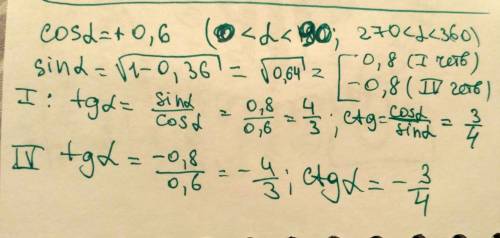 cosα=+0,6 (0<α<90; 270<α<360)
sinα=√1-0,36=√0,64=[0,8 (I четв)
-0,8 (IV четв)
I: tgα=sinα/cosα=0,8/0,6=4/3; ctg=cosα/sinα=3/4
IV tgα=-0,8/0,6=-4/3; ctgα=-3/4